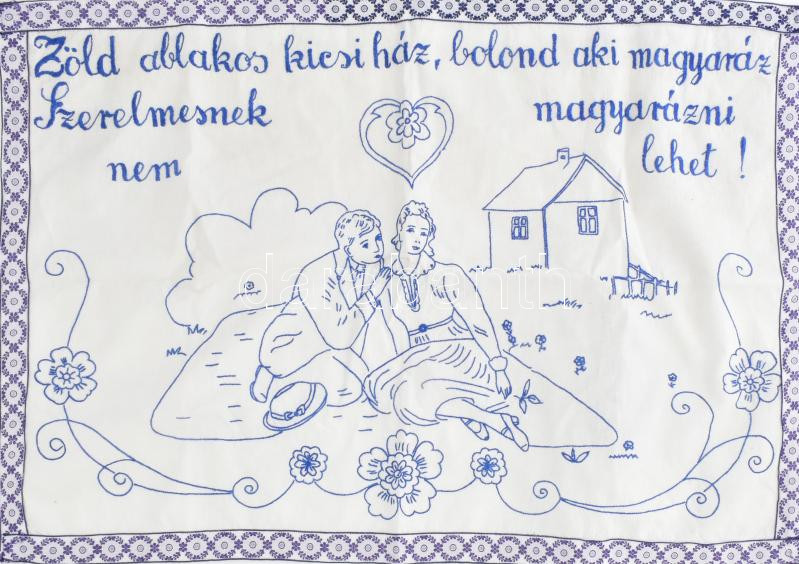 Zöld ablakos kicsi ház, bolond aki magyaráz
Szerelmesnek magyarázni
nem lehet!
darabanth